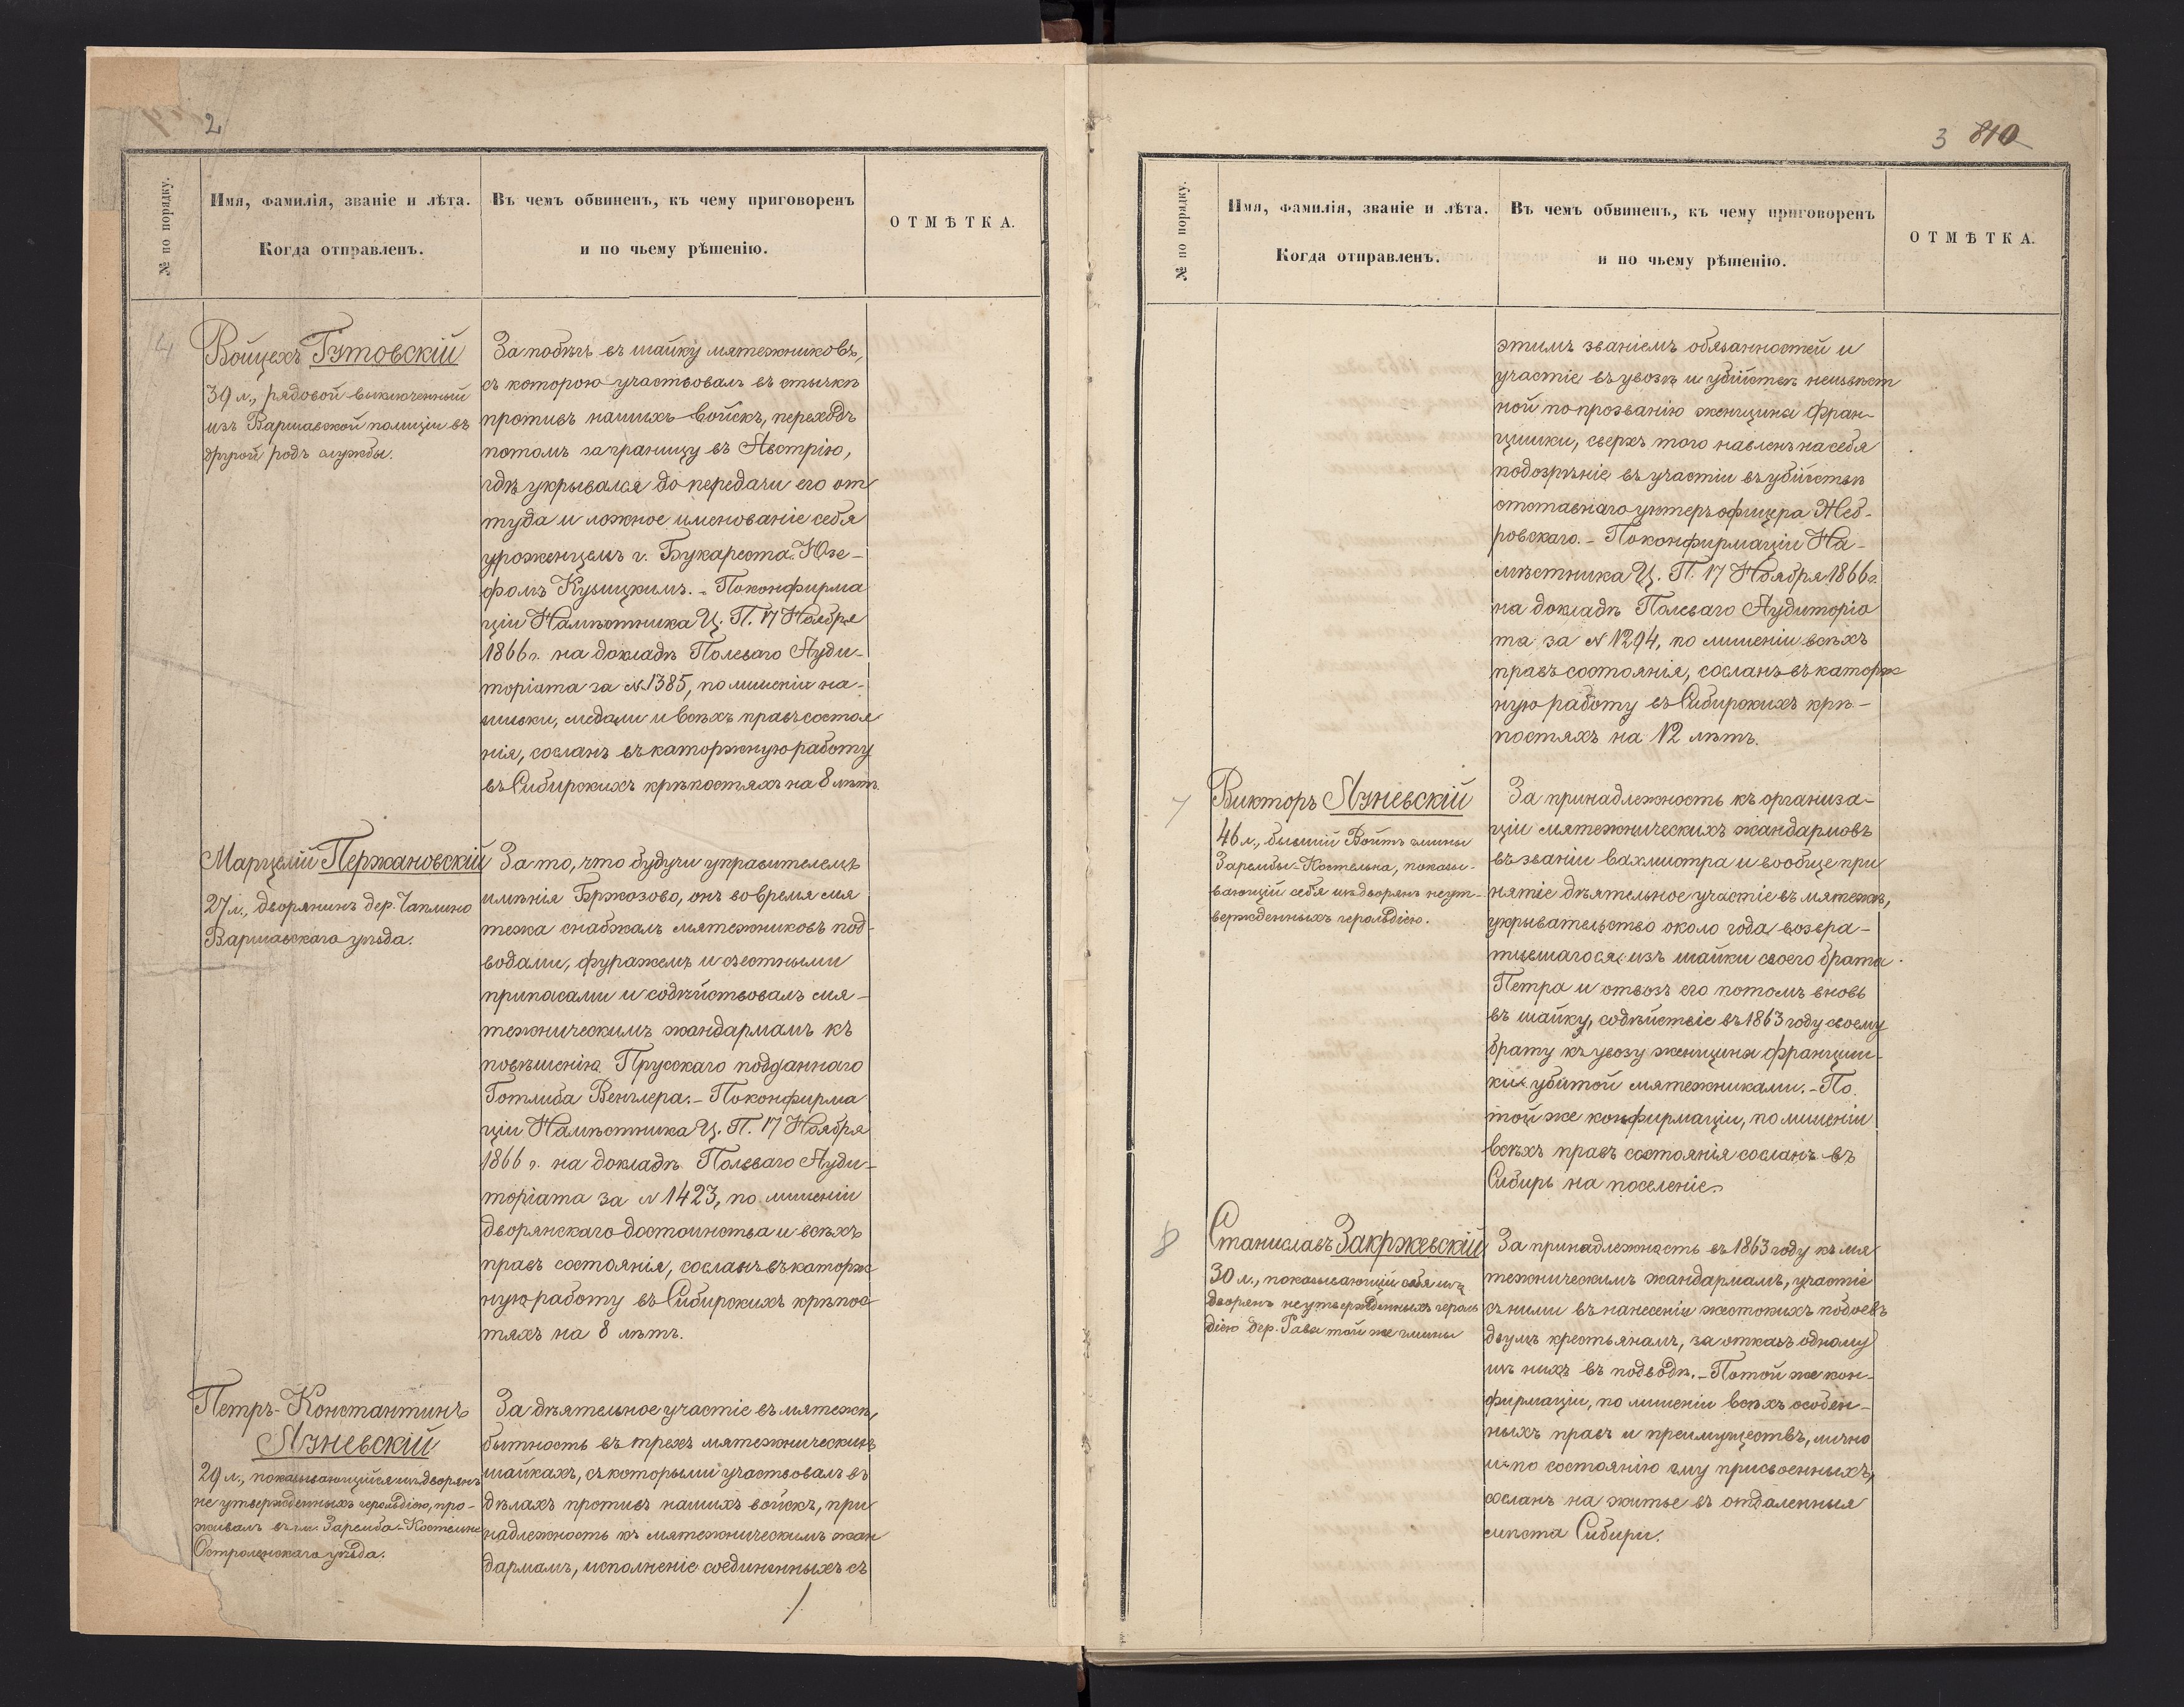 2
№ по порядку.
Имя, фамилія, званіе и лѣта.
Когда отправленъ.
Въ чемъ обвиненъ, къ чему приговоренъ
и по чьему рѣшенію.
ОТМѢТКА.
4
Войцехъ Гутовскій
39 л., рядовой выключенный
изъ Варшавской полиціи въ
другой родъ службы.
За побѣгъ въ шайку мятежниковъ,
съ которою участвовалъ въ стычкѣ
противъ нашихъ войскъ, переходъ
потомъ заграницу въ Австрію,
гдѣ укрывался до передачи его от
туда и ложное именованіе себя
уроженцемъ г. Букареста Юзе-
фомъ Кузицкимъ. - По конфирма
ціи Намѣстника Ц. П. 17 Ноября
1866 г. на докладѣ Полеваго Ауди-
торіата за № 1385, по лишеніи на-
шивки, медали и всѣхъ правъ состоя
нія, сосланъ въ каторжную работу
въ Сибирскихъ крѣпостяхъ на 8 лѣтъ.
Марцелій Пержановскій
27 л., дворянинъ дер. Чаплино
Варшавскаго уѣзда.
За то, что будучи управителемъ
имѣнія Бржозово, онъ во время мя
тежа снабжалъ мятежниковъ под-
водами, фуражемъ и съестными
припасами и содѣйствовалъ мя-
тежническимъ жандармамъ къ
повѣшенію Прусскаго подданнаго
Готлиба Венглера. - По конфирма
ціи Намѣстника Ц. П. 17 Ноября
1866 г. на докладѣ Полеваго Ауди-
торіата за № 1423, по лишеніи
дворянскаго достоинства и всѣхъ
правъ состоянія, сосланъ въ каторж
ную работу въ Сибирскихъ крѣпос
тяхъ на 8 лѣтъ.
Петръ-Константинъ
Язневскій
29 л., показывающійся изъ дворянъ
не утвержденныхъ герольдіею, про-
живалъ въ гм. Заремба-Костельне
Остроленскаго уѣзда.
За дѣятельное участіе въ мятежѣ,
бытность въ трехъ мятежническихъ
шайкахъ, съ которыми участвовалъ въ
дѣлахъ противъ нашихъ войскъ, при
надлежность къ мятежническимъ жан
дармамъ, исполненіе соединенныхъ съ
3 810
№ по порядку.
Имя, фамилія, званіе и лѣта.
Когда отправленъ.
Въ чемъ обвиненъ, къ чему приговоренъ
и по чьему рѣшенію.
ОТМѢТКА.
этимъ званіемъ обязанностей и
участіе въ увозѣ и убійствѣ неизвѣст
ной по прозванію женщины Фран-
цишки, сверхъ того навлекъ на себя
подозрѣніе въ участіи въ убійствѣ
отставнаго унтеръ офицера Жеб-
ровскаго. - По конфирмаціи На-
мѣстника Ц. П. 17 Ноября 1866 г.
на докладѣ Полеваго Аудиторіа
та за № 1294, по лишеніи всѣхъ
правъ состоянія, сосланъ въ каторж
ную работу въ Сибирскихъ крѣ-
постяхъ на 12 лѣтъ.
7
Викторъ Язневскій
46 л., бывшій Войтъ гмины
Зарембы-Костельна, показы-
вающій себя изъ дворянъ неут-
вержденныхъ герольдіею.
За принадлежность къ организа-
ціи мятежническихъ жандармовъ
въ званіи вахмистра и вообще при
нятіе дѣятельное участіе въ мятежѣ,
укрывательство около года возвра-
тившагося изъ шайки своего брата
Петра и отвозъ его потомъ вновь
въ шайку, содѣйствіе въ 1863 году своему
брату къ увозу женщины Францишк-
ки убитой мятежниками. - По
той же конфирмаціи, по лишеніи
всѣхъ правъ состоянія сосланъ въ
Сибирь на поселеніе.
8
Станиславъ Закржевскій
30 л., показывающій себя изъ
дворянъ неутвержденныхъ героль
діею дер. Рава той же гмины
За принадлежность въ 1863 году къ мя
тежническимъ жандармамъ, участіе
съ ними въ нанесеніи жестокихъ побоевъ
двумъ крестьянамъ, за отказъ одному
изъ нихъ въ подводѣ. - По той же кон-
фирмаціи, по лишеніи всѣхъ особен-
ныхъ правъ и преимуществъ, лично
и по состоянію ему присвоенныхъ,
сосланъ на житье въ отдаленныя
мѣста Сибири.